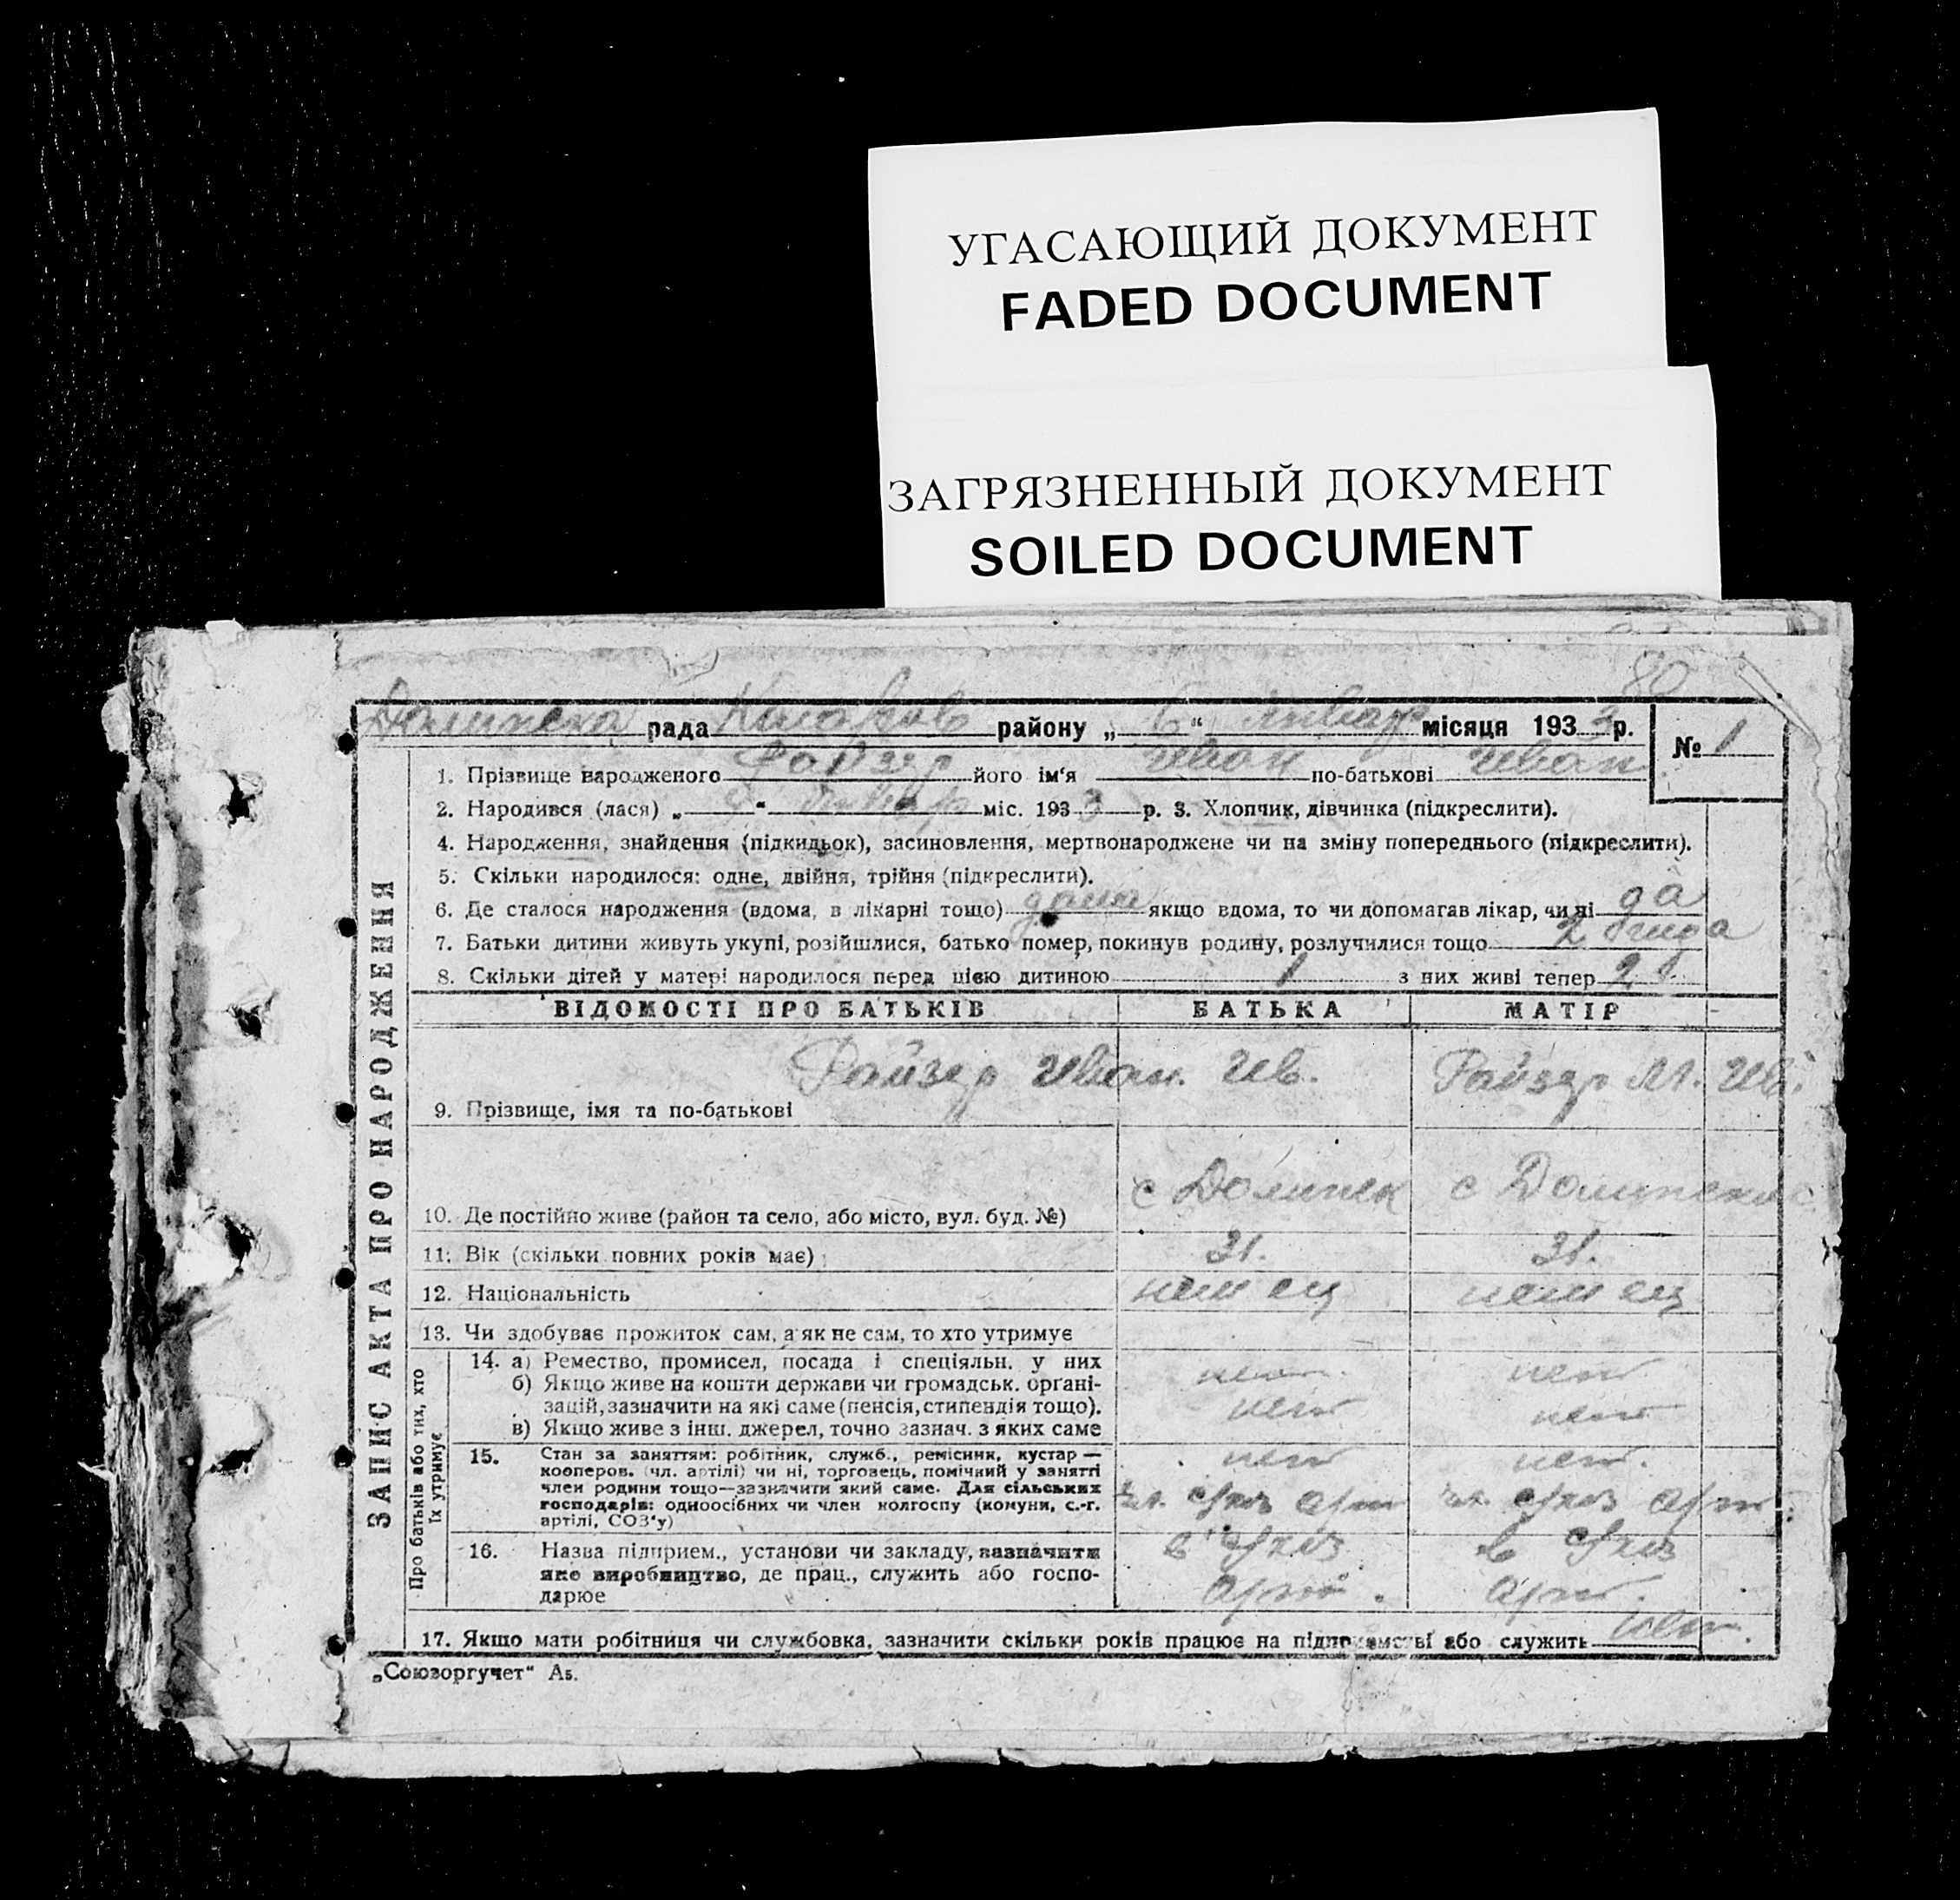 УГАСАЮЩИЙ ДОКУМЕНТ
FADED DOCUMENT
ЗАГРЯЗНЕННЫЙ ДОКУМЕНТ
SOILED DOCUMENT
80
рада району „ 6 “ январ місяця 193 3 р.
№ 1
1. Прізвище народженого Райзер його ім‘я Иван по-батькові Иван
2. Народився (лася) „ “ январ міс. 193 3 р. 3. Хлопчик, дівчинка (підкреслити).
4. Народження, знайдення (підкидьок), засиновлення, мертвонароджене чи на зміну попереднього (підкреслити).
5. Скільки народилося: одне, двійня, трійня (підкреслити).
6. Де сталося народження (вдома, в лікарні тощо) дома якщо вдома, то чи допомагав лікар, чи ні да
7. Батьки дитини живуть укупі, розійшлися, батько помер, покинув родину, розлучилися тощо
8. Скільки дітей у матері народилося перед цією дитиною 1 з них живі тепер 2
ЗАПИС АКТА ПРО НАРОДЖЕННЯ
ВІДОМОСТІ ПРО БАТЬКІВ БАТЬКА МАТІР
Райзер Иван. Ив. Райзер М. Ив.
9. Прізвище, імя та по-батькові
с Долинск с Долинска
10. Де постійно живе (район та село, або місто, вул. буд. №)
11. Вік (скільки повних років має) 31. 31.
12. Національність немец немец
13. Чи здобуває прожиток сам, а як не сам, то хто утримує
Про батьків або тих, хто їх утримує
14. а) Ремество, промисел, посада і спеціяльн. у них нет. нет
б) Якщо живе на кошти держави чи громадськ. органі-
зацій, зазначити на які саме (пенсія, стипендія тощо). нет нет
в) Якщо живе з інш. джерел, точно зазнач. з яких саме
15. Стан за заняттям: робітник, служб., ремісник, кустар — нет нет.
кооперов. (чл. артілі) чи ні, торговець, помічний у занятті
член родини тощо—зазначити який саме. Для сільських
господарів: одноосібних чи член колгоспу (комуни, с.-г. чл. с/хоз арт чл. с/хоз арт.
артілі, СОЗ‘у)
16. Назва підприєм., установи чи закладу, зазначити в с/хоз в с/хоз
яке виробництво, де прац., служить або госпо-
дарює арт. арт.
17. Якщо мати робітниця чи службовка, зазначити скільки років працює на підприємстві або служить нет.
„Союзоргучет“ А5.